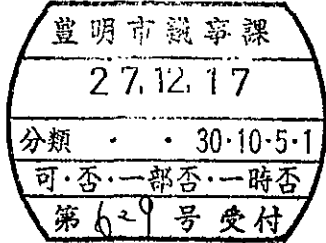 豊明市議事課
27.12.17
分類 ・ ・ 30・10・5・1
可・否・一部否・一時否
第629号受付